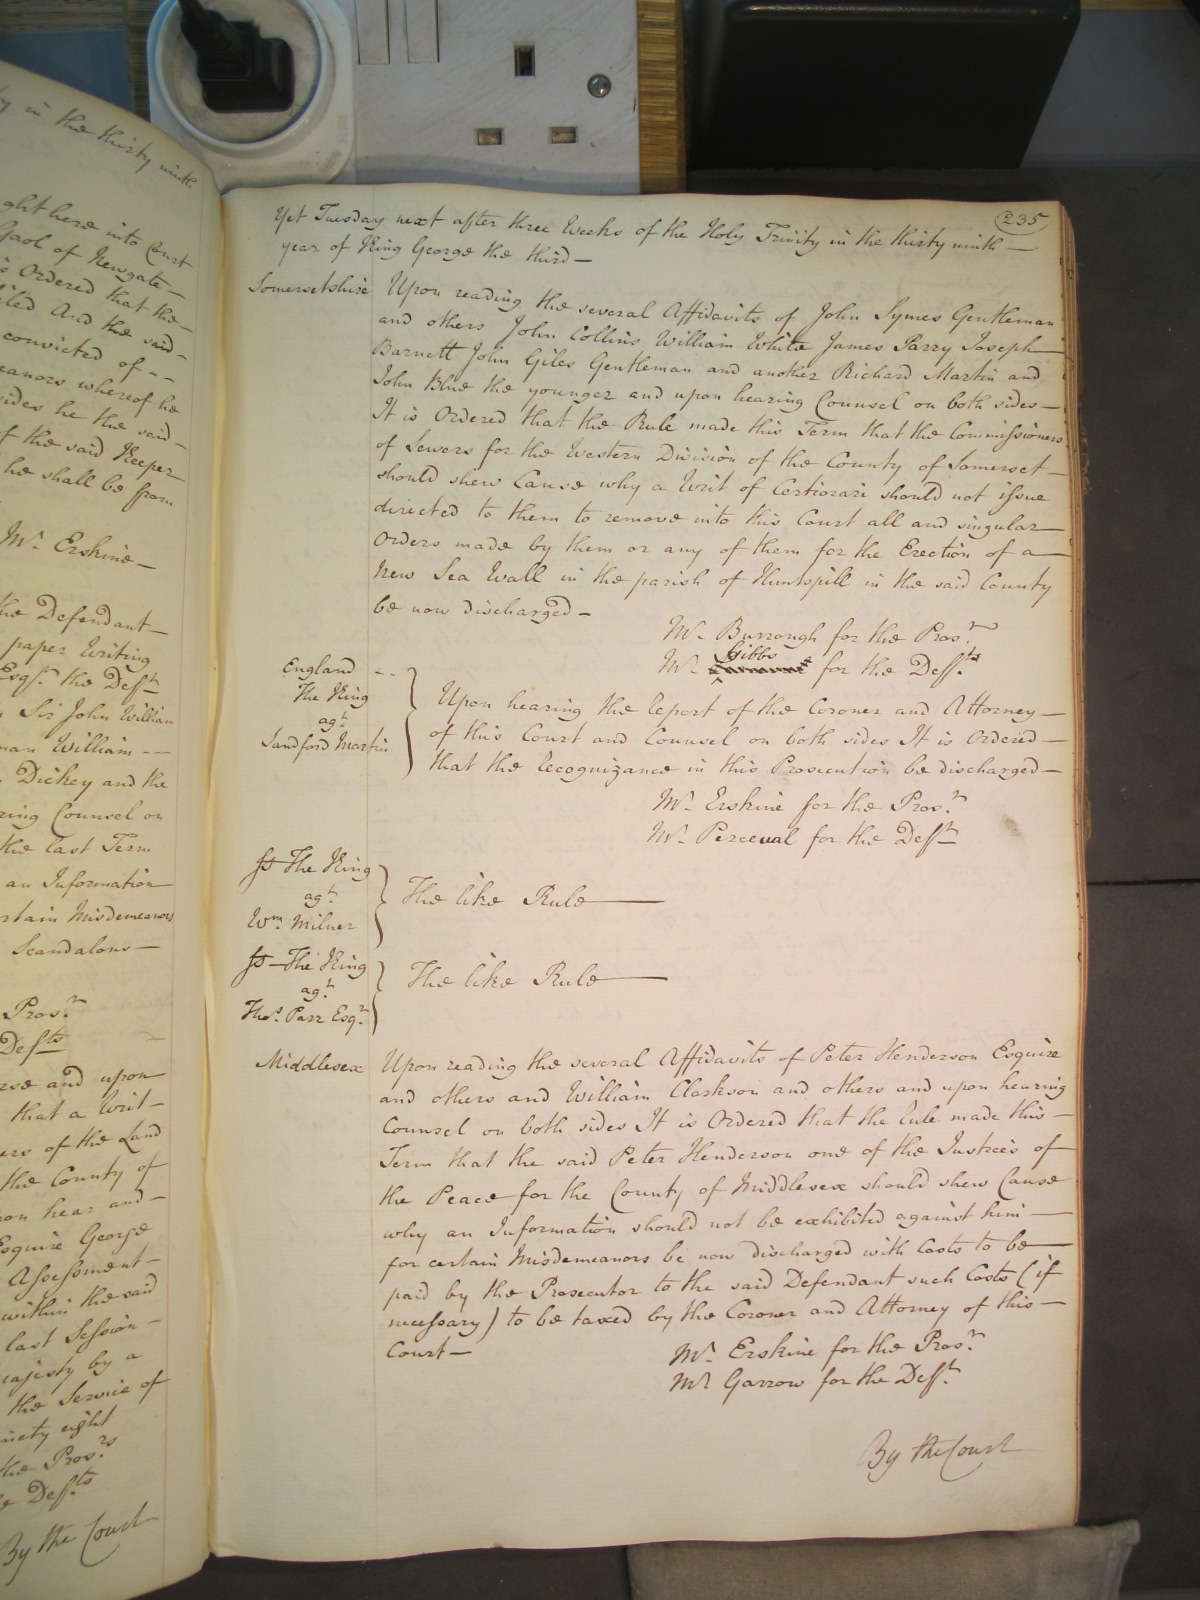 y in the thirty ninth
ght here into Court
Gaol of Newgate —
is Ordered that the —
iled And the said —
convicted of - -
eanors whereof he
sides he the said —
f the said Keeper
he shall be from
Mr. Erskine —
the Defendant —
paper Writing
Esqr. the Deft
Sir John William
man William - - -
Dickey and the
ring Counsel on
the last Term
an Information
rtain Misdemeanors
Scandalous —
Prosr.
Defts
rse and upon
that a Writ —
ers of the Land
the County of
on hear and —
Esquire George
Assessment —
within the said
last Session —
ajesty by a
the Service of
inety eight
the Prosrs.
e Defts.
By the Court
235
Yet Tuesday next after three Weeks of the Holy Trinity in the thirty ninth —
year of King George the third —
Somersetshire Upon reading the several Affidavits of John Symes Gentleman
and others John Collins William White James Parry Joseph —
Barnett John Giles Gentleman and another Richard Martin and
John Blue the younger and upon hearing Counsel on both sides —
It is Ordered that the Rule made this Term that the Commissioners
of Sewers for the Western Division of the County of Somerset —
should shew Cause why a Writ of Certiorari should not issue
directed to them to remove into this Court all and singular —
Orders made by them or any of them for the Erection of a —
New Sea Wall in the parish of Huntspill in the said County
be now discharged —
Mr. Burrough for the Prosr.
Mr. Gibbs for the Defts.
England - -
The King
agt.
Sandford Martin
Upon hearing the Report of the Coroner and Attorney —
of this Court and Counsel on both sides It is Ordered —
that the Recognizance in this Prosecution be discharged —
Mr. Erskine for the Prosr.
Mr. Perceval for the Deft
ss The King
agt.
Wm. Milner
The like Rule —
ss — The King
agt.
Thos. Parr Esqr.
The like Rule —
Middlesex Upon reading the several Affidavits of Peter Henderson Esquire
and others and William Clarkson and others and upon hearing
Counsel on both sides It is Ordered that the Rule made this —
Term that the said Peter Henderson one of the Justices of
the Peace for the County of Middlesex should shew Cause
why an Information should not be exhibited against him —
for certain Misdemeanors be now discharged with Costs to be —
paid by the Prosecutor to the said Defendant such Costs (if
necessary) to be taxed by the Coroner and Attorney of this —
Court —
Mr. Erskine for the Prosr.
Mr Garrow for the Deft.
By the Court